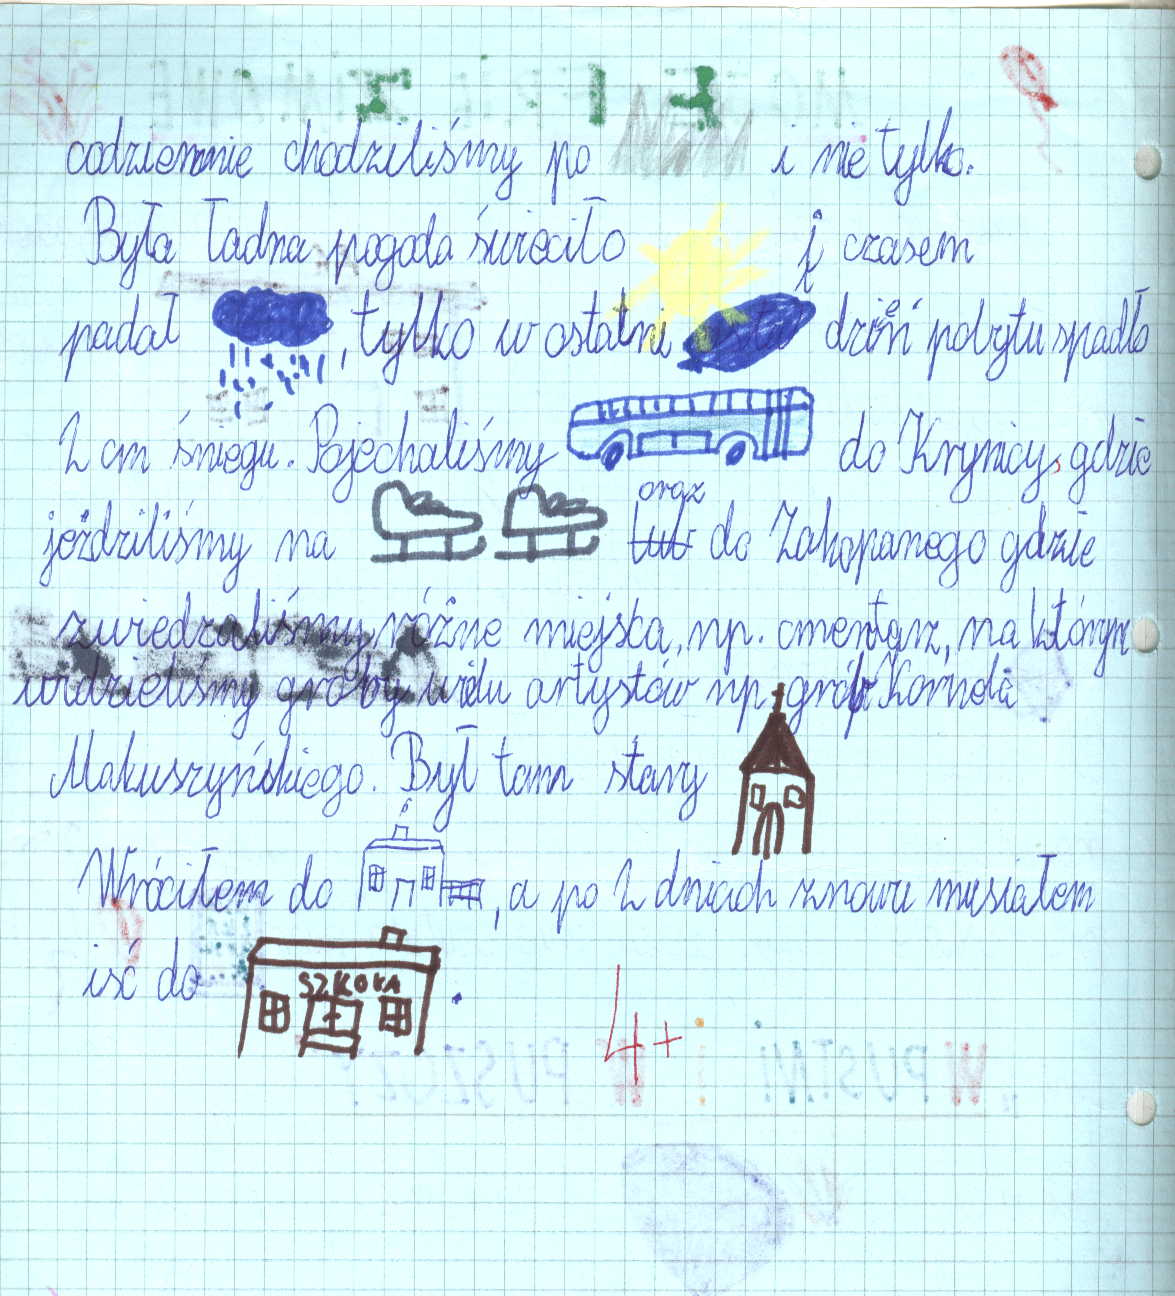 codziennie chodziliśmy po i nie tylko.
Była ładna pogoda świeciło i czasem
padał , tylko w ostatni dzień pobytu spadło
2 cm śniegu. Pojechaliśmy do Krynicy, gdzie
oraz
jeździliśmy na lub do Zakopanego gdzie
zwiedzaliśmy różne miejsca, np. cmentarz, na którym
widzieliśmy groby wielu artystów np. grób Kornela
Makuszyńskiego. Był tam stary
Wróciłem do , a po 2 dniach znowu musiałem
iść do SZKOŁA .
4+
W PUSTYNI I W PUSZCZY